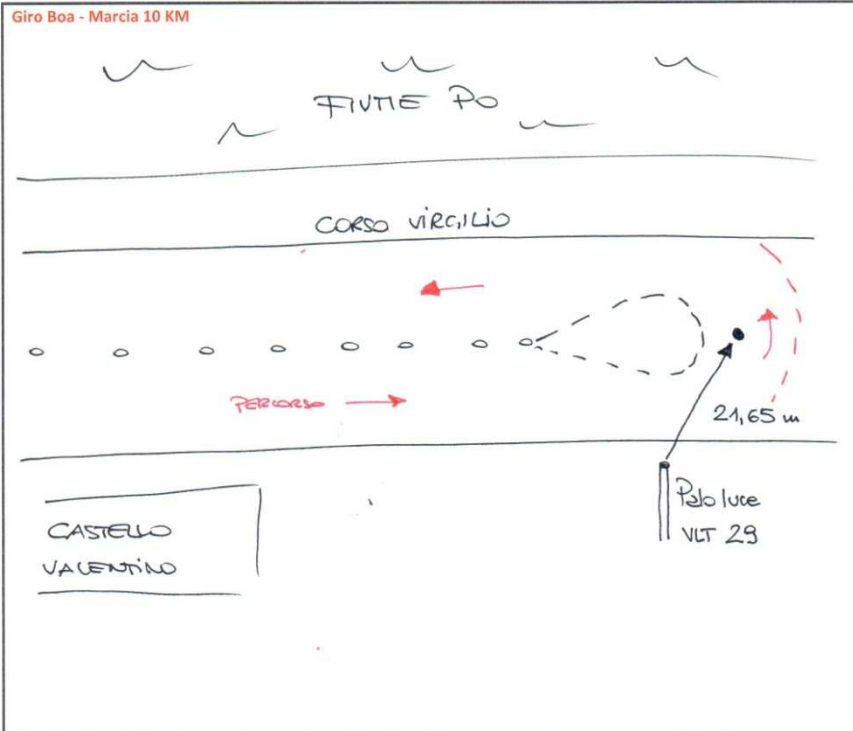 Giro Boa - Marcia 10 KM
FIUME PO
CORSO VIRGILIO
PERCORSO
21,65 m
Palo luce
VLT 29
CASTELLO
VALENTINO